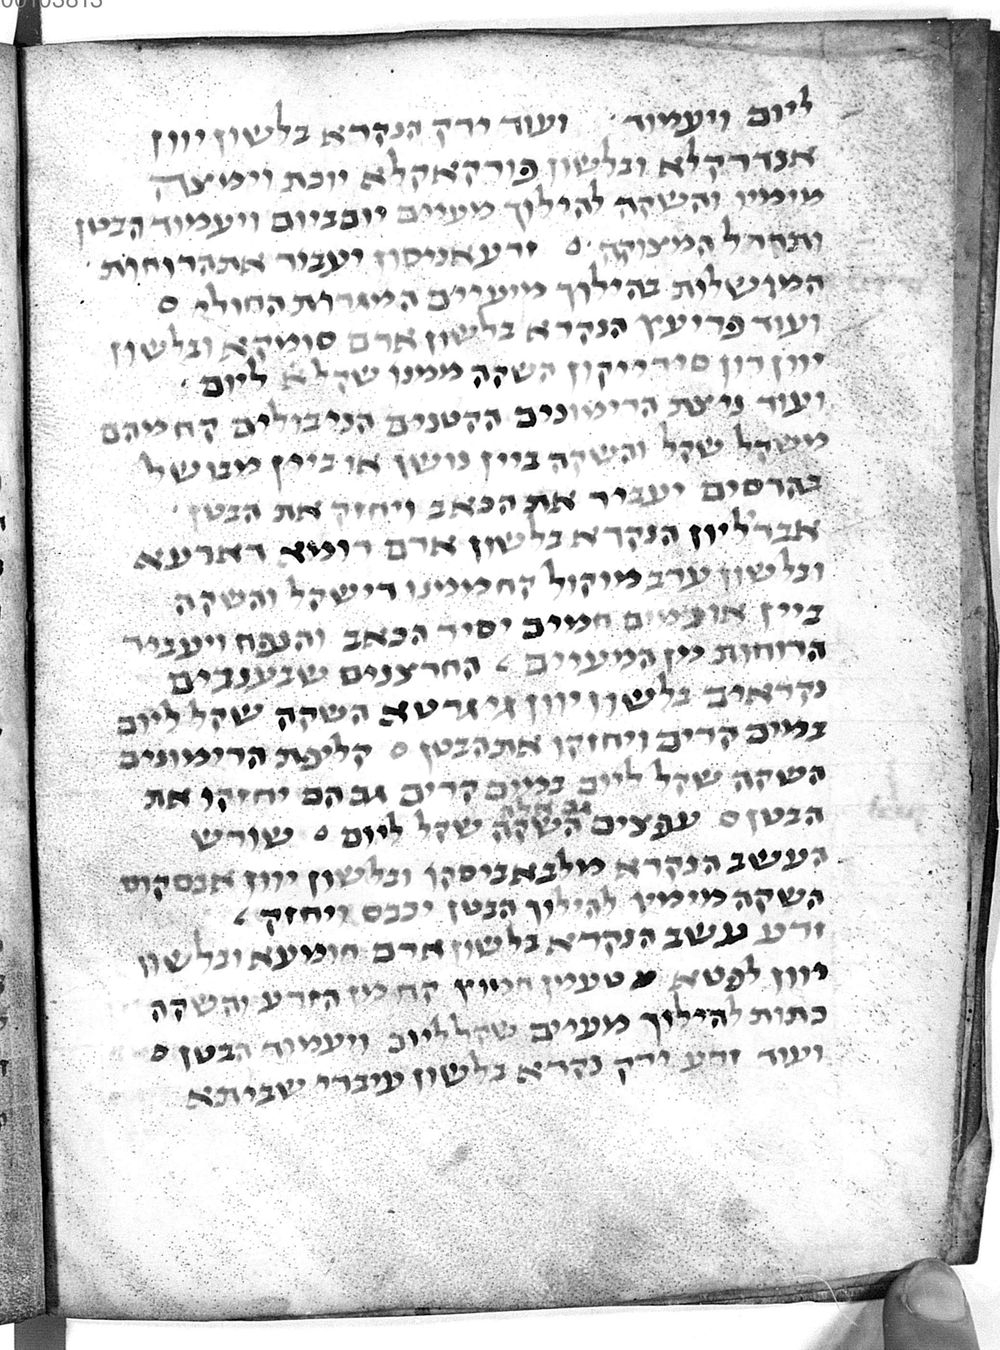 ליום ויעמוד · ועוד ירק הנקרא בלשון יוון
אנדרקלא ובלשון פורקאקלא יוכת וימצה
מימיו והשקה להילוך מעיים יום ביום ויעמוד הבטן
ותקהל המצוקה · זרע אניסון יעביר את הרוחות ·
המושלות בהילוך מיעיים המגרות החולי ο
ועוד פרי עץ הנקרא בלשון ארם סומקא ובלשון
יוון רון סירייקון השקה ממנו שקל א ליום ·
ועוד ניצת הרימונים הקטנים הניבולים קח מהם
משקל שקל והשקה ביין נושן או ביין מבושל
בהדסים יעביר את הכאב ויחזק את הבטן ·
אברליון הנקרא בלשון ארם רומא דארעא
ובלשון ערב מוקול קח ממנו רישקל והשקה
ביין או במים חמים יסיר הכאב והנפח ויעביר
הרוחות מין המעיים · החרצנים שבענבים
נקראים בלשון יוון גיגרטא השקה שקל ליום
במים קרים ויחזקו את הבטן ο קליפת הרימונים
השקה שקל ליום במים קרים גם הם יחזקו את
גם אלה
הבטן ο עפצים השקה שקל ליום ο שורש
העשב הנקרא מלבאביסקו ובלשון יוון אבסקוס
השקה מימיו להילוך הבטן יכבס ויחזק ·
זרע עשב הנקרא בלשון ארם חומעא ובלשון
יוון לפטא טעמן חמוץ קח מן הזרע והשקה
כתות להילוך מעיים שקל ליום ויעמוד הבטן ο
ועוד זרע ירק נקרא בלשון עיברי שביתא